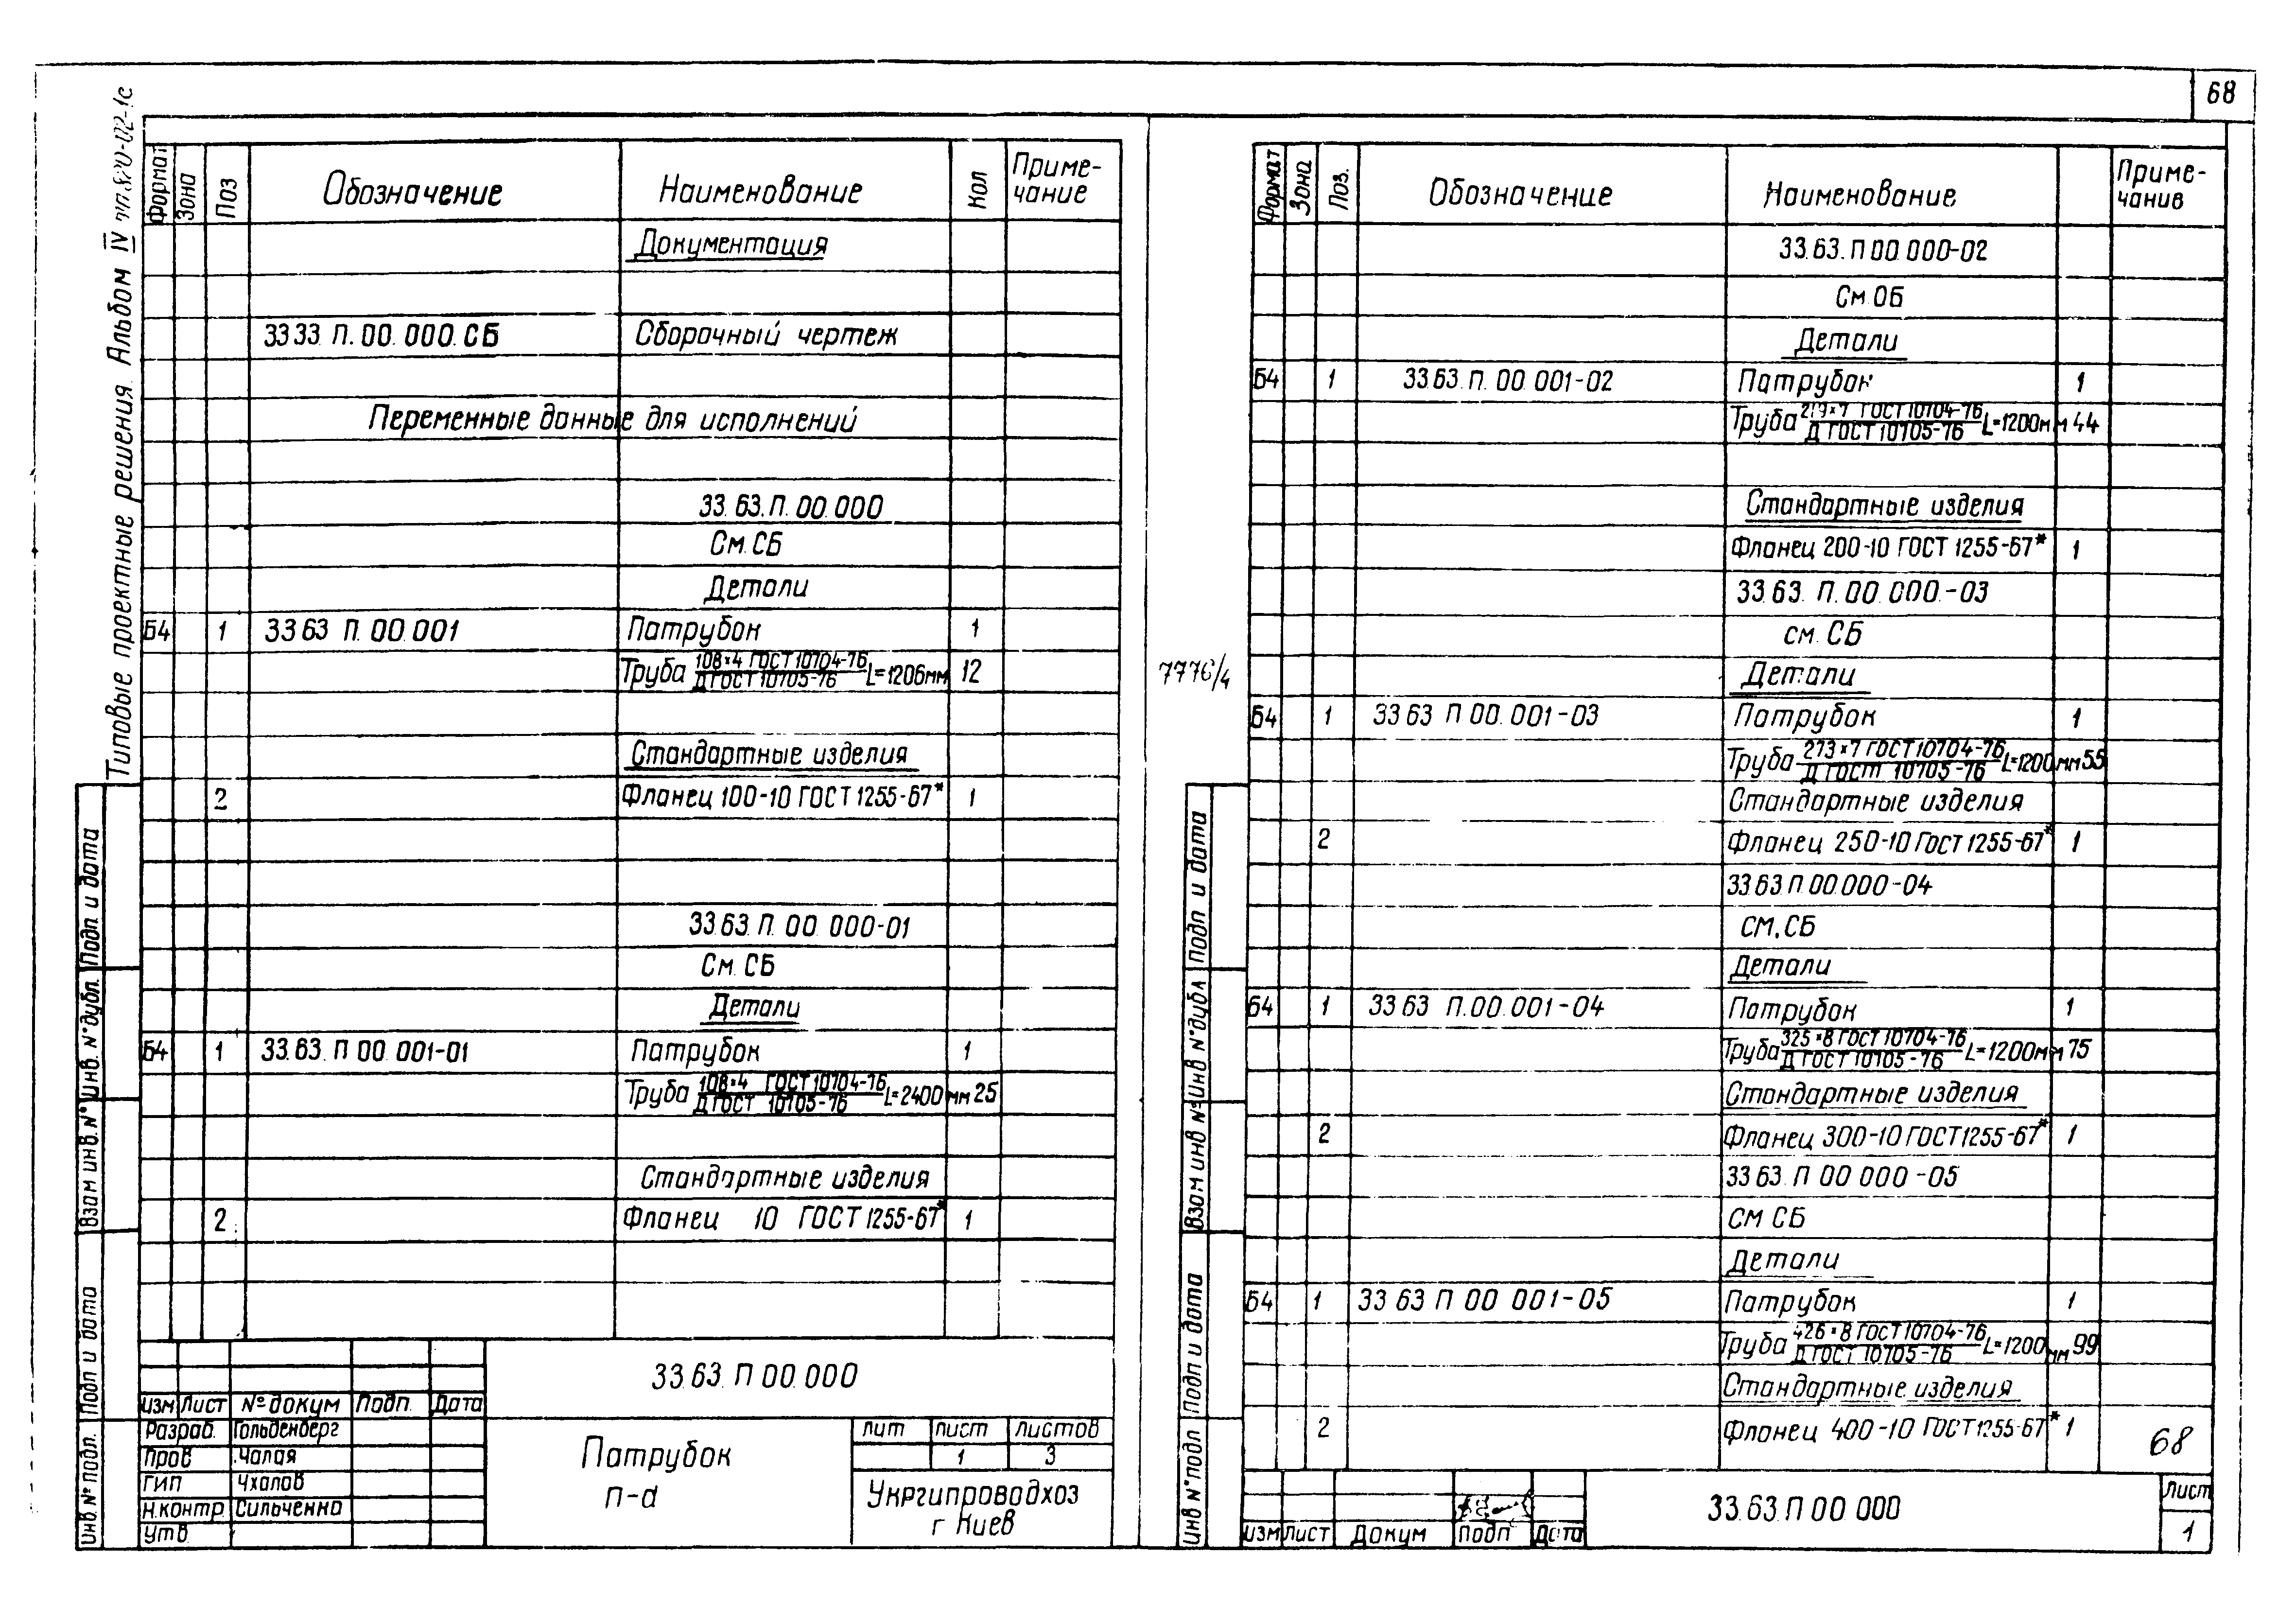 68
Типовые проектные решения. Альбом IV
Формат Зона Поз Обозначение Наименование Кол Приме-
чание
Документация
3333 П. 00. 000. СБ Сборочный чертеж
Переменные данные для исполнений
33.63.П.00.000
См.СБ
Детали
Б4 1 3363 П. 00.001 Патрубок 1
Труба 108×4 ГОСТ 10704-76 L=1206мм 12
Д ГОСТ 10705-76
Стандартные изделия
2 Фланец 100-10 ГОСТ 1255-67* 1
33.63.П. 00. 000-01
См. СБ
Детали
Б4 1 33.63. П 00. 001-01 Патрубок 1
Труба 108×4 ГОСТ 10704-76 L=2400 мм 25
Д ГОСТ 10705-76
Стандартные изделия
2 Фланец 10 ГОСТ 1255-67* 1
Подп и дата
Инв. №дубл.
Взам инв. №
Подп и дата
Инв. № подл.
33.63. П 00.000
Изм Лист № докум Подп. Дата
Разраб. Гольденберг
Пров Чалая
ГИП Чхалов
Н.контр Сильченко
Утв
Патрубок
п-d
Лит Лист Листов
1 3
Укргипроводхоз
г Киев
7776/4
Формат Зона Поз. Обозначение Наименование Приме-
чание
33.63.П 00.000-02
См.ОБ
Детали
Б4 1 3363. П. 00 001-02 Патрубок 1
Труба 219×7 ГОСТ 10704-76 L=1200мм 44
Д ГОСТ 10705-76
Стандартные изделия
Фланец 200-10 ГОСТ 1255-67* 1
33.63. П.00.000.-03
см. СБ
Детали
Б4 1 33 63 П 00. 001-03 Патрубок 1
Труба 273×7 ГОСТ 10704-76 L=1200мм 55
Д ГОСТ 10705-76
Стандартные изделия
2 Фланец 250-10 ГОСТ 1255-67* 1
33 63 П 00.000-04
СМ.СБ
Детали
Б4 1 33 63 П.00.001-04 Патрубок 1
Труба 325×8 ГОСТ 10704-76 L=1200мм 75
Д ГОСТ 10705-76
Стандартные изделия
2 Фланец 300-10 ГОСТ 1255-67* 1
33 63 П 00 000-05
СМ СБ
Детали
Б4 1 33 63 П 00 001-05 Патрубок 1
Труба 426×8 ГОСТ 10704-76 L=1200 мм 99
Д ГОСТ 10705-76
Стандартные изделия
2 Фланец 400-10 ГОСТ 1255-67* 1
68
Подп и дата
Инв №дубл
Взам инв №
Подп и дата
Инв № подл
Изм Лист Докум Подп Дата
33.63.П 00 000
Лист
1